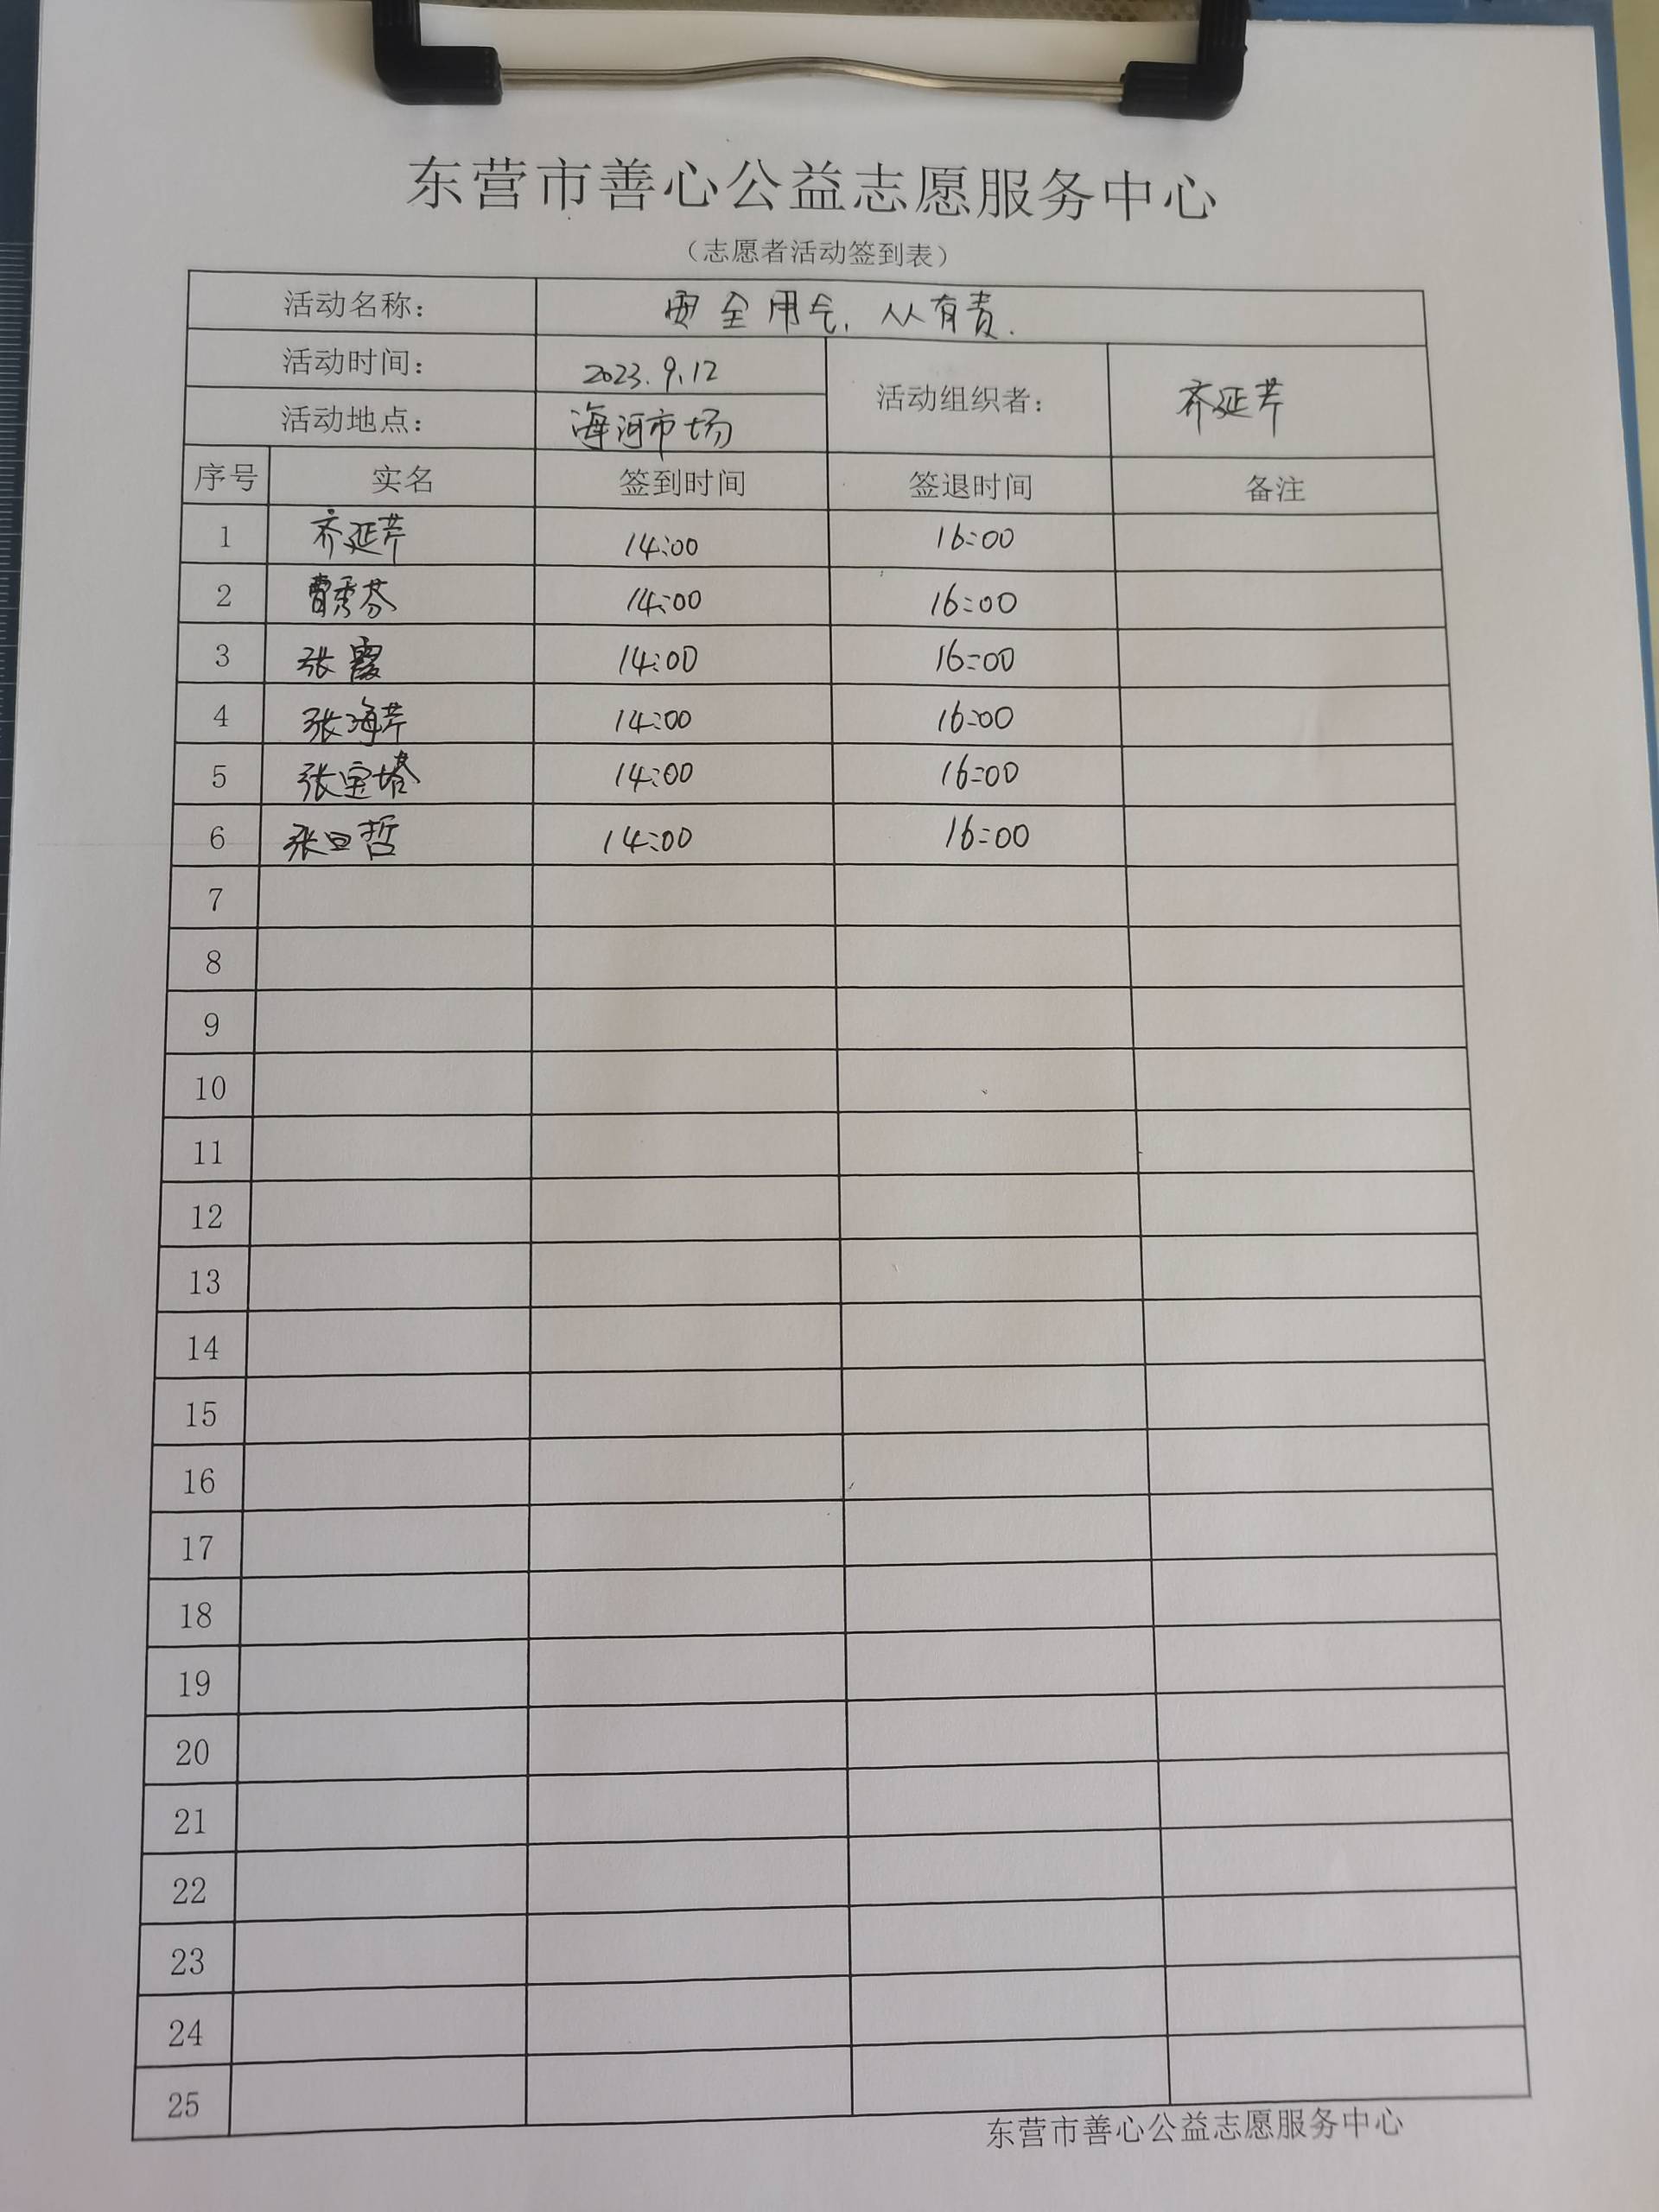 东营市善心公益志愿服务中心
（志愿者活动签到表）
活动名称： 安全用气，人人有责.
活动时间： 2023.9.12 活动组织者： 齐延芹
活动地点： 海河市场
序号 实名 签到时间 签退时间 备注
1 齐延芹 14:00 16:00
2 曹秀芬 14:00 16:00
3 张霞 14:00 16:00
4 张海芹 14:00 16:00
5 张宝塔 14:00 16:00
6 张旦哲 14:00 16:00
7
8
9
10
11
12
13
14
15
16
17
18
19
20
21
22
23
24
25
东营市善心公益志愿服务中心